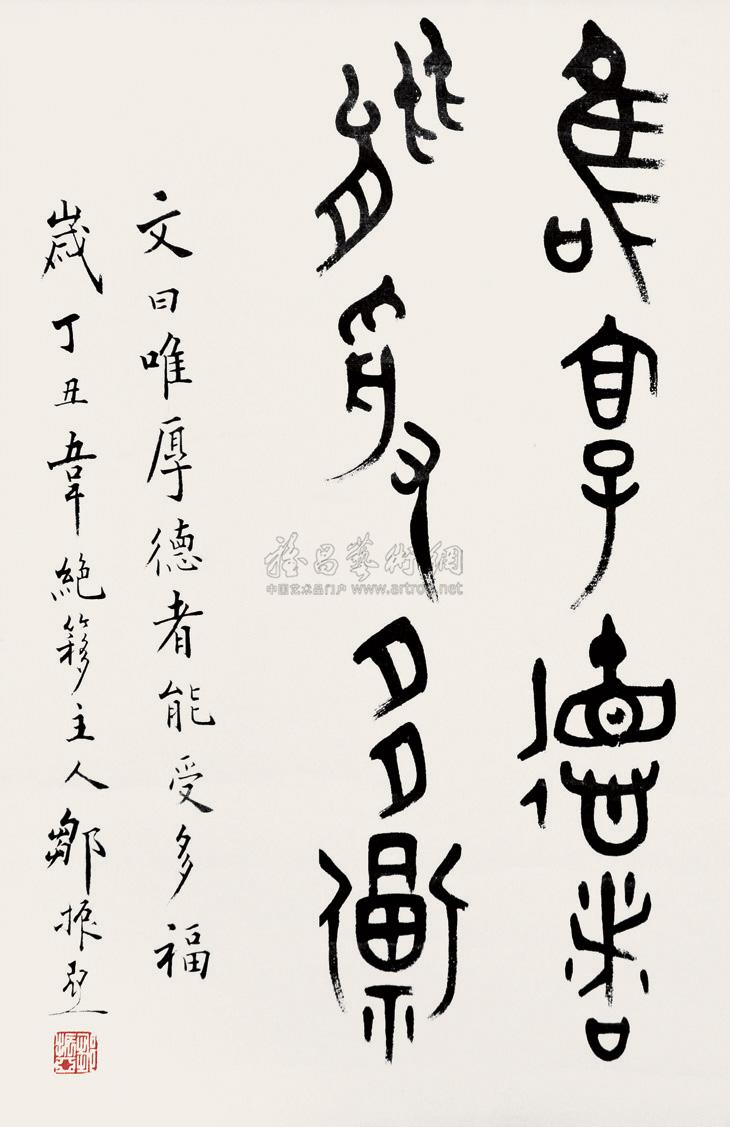 唯厚德者
能受多福
文曰唯厚德者能受多福
歲丁丑韋絕簃主人鄒振亞
雅昌藝術網
中国艺术品门户 www.artron.net